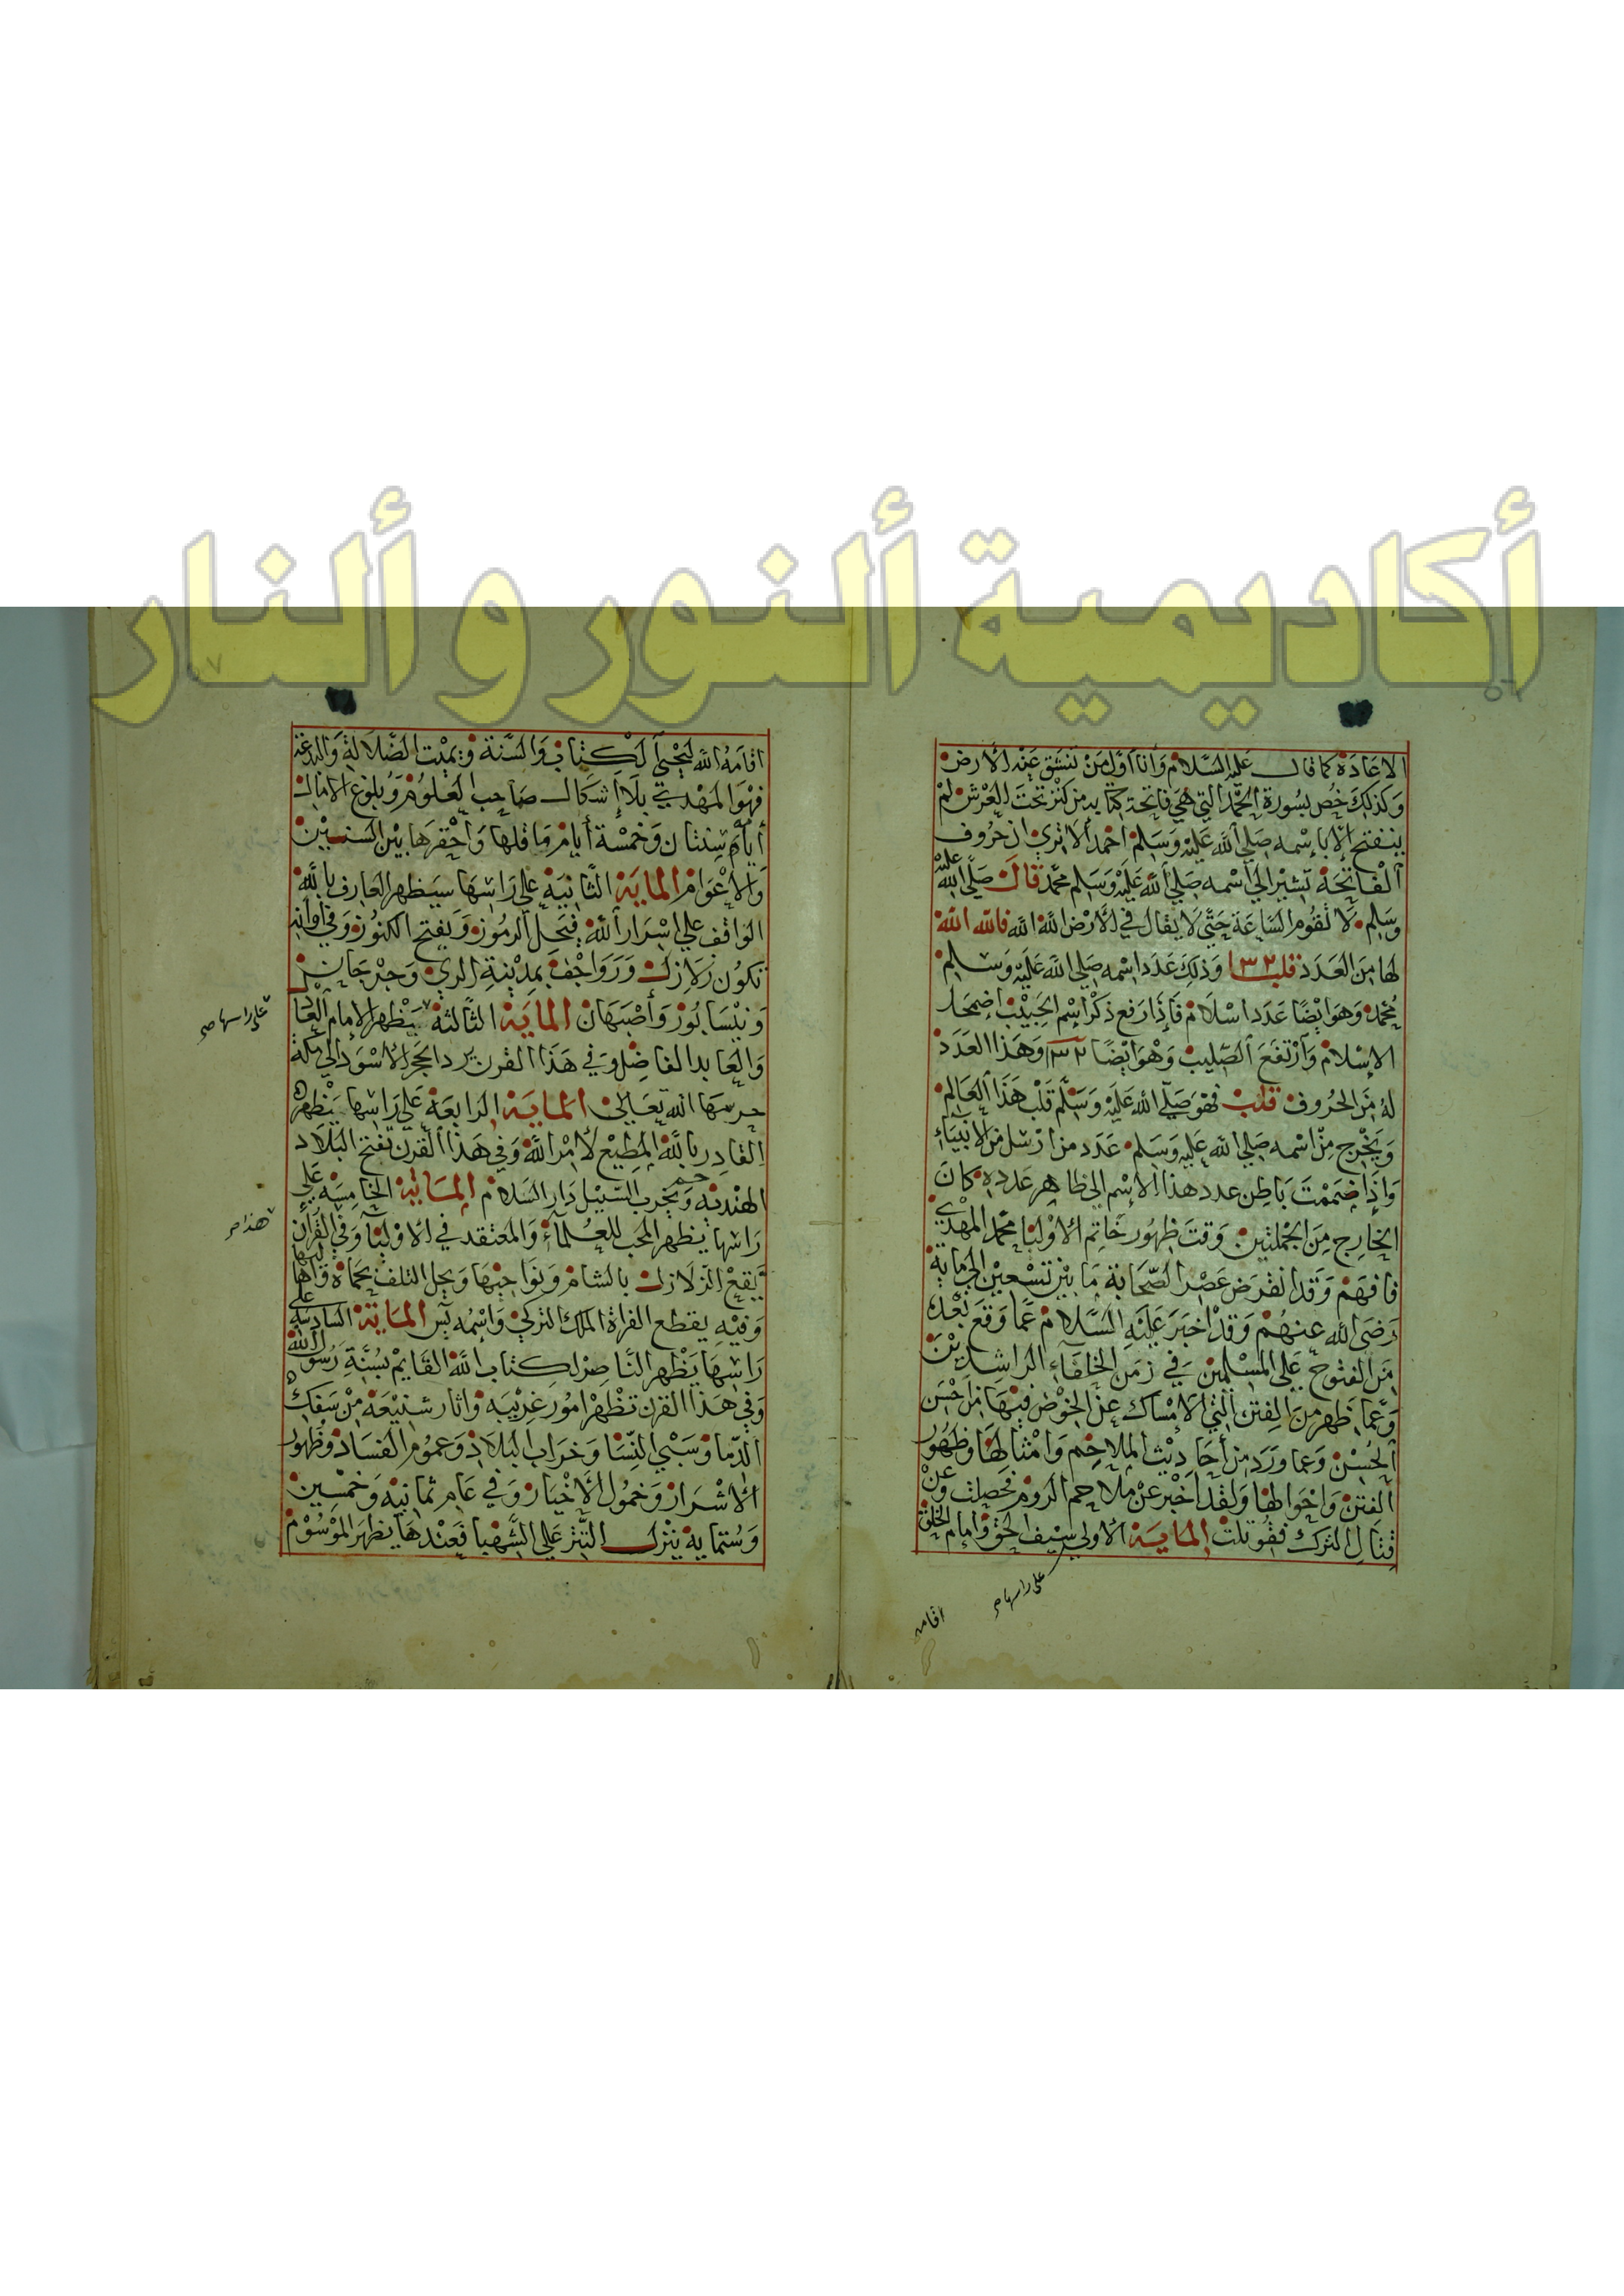 أكاديمية ألنور و ألنار
الاعادة كما قال عليه السلام وأنا أول من تنشق عنه الأرض
وكذلك خص بسورة الحمد التي هي فاتحة كتابه من كنز تحت العرش لم
ينفتح إلا بإسمه صلي الله عليه وسلم احمد ألا تري ان حروف
ألفاتحة تشير الي اسمه صلي ألله عليه وسلم محمد قال صلي الله عليه
وسلم لا تقوم الساعة حتي لا يقال في الأرض لله الله فالله الله
لها من العدد قلب ١٣٢ وذلك عدد اسمه صلي الله عليه وسلم
محمد وهو ايضا عدد اسلام فإذا رفع ذكر اسم الحبيب إضمحل
الإسلام وارتفع الصليب وهو أيضا ١٣٢ وهذا العدد
له من الحروف قلب فهو صلي الله عليه وسلم قلب هذا العالم
ويخرج من اسمه صلي الله عليه وسلم عدد من ارسل من الأنبياء
وإذا ضممت باطن عدد هذا الاسم الي ظاهر عدده كان
الخارج من الجملتين وقت ظهور خاتم الأوليا محمد المهدي
فافهم وقد انقرض عصر الصحابة ما بين تسعين الي ماية
رضي الله عنهم وقد اخبر عليه السلام عما وقع بعده
من الفتوح علي المسلمين في زمن الخلفاء الراشدين
وعما ظهر من الفتن التي الامساك عن الخوض فيها من احسن
الحسن وعما ورد من أحاديث الملاحم وامثالها وظهور
الفتن واحوالها ولقد اخبر عن ملاحم الروم فحصلت وعن
قتال الترك فقوتلت الماية الأولي سيف الحق وإمام الخلق
علي راسها صح
اقامه
اقامه الله ليحيي الكتاب والسنة ويميت الضلالة والبدعة
فهو المهدي بلا إشكال صاحب العلوم وبلوغ الامال
أيامه سنتان وخمسة أيام ما قلها وأحقرها بين السنين
والأعوام الماية الثانية علي راسها سيظهر العارف بالله
الواقف علي اسرار ألله فيحل الرموز ويفتح الكنوز وفي اوانه
تكون زلازل ورواجف بمدينة الري وجرجان
ونيسابور وأصبهان الماية الثالثة يظهر الإمام العادل
علي راسها صح
والعابد الفاضل وفي هذا القرن يرد الحجر الاسود الي مكة
حرسها الله تعالي الماية الرابعة علي راسها يظهر
القادر بالله المطيع لأمر الله وفي هذا القرن تفتح البلاد
الهندية ويخرب السيل دار السلام الماية الخامسة علي
راسها يظهر المحب للعلماء والمعتقد في الاوليا وفي القرن
هذا صح
يقع الزلازل بالشام ونواحيها ويحل التلف بحماة وأهاليها
وفيه يقطع الفراة الملك التركي وإسمه يس الماية السادسة علي
راسها يظهر الناصر لكتاب الله القايم بسنة رسول الله
وفي هذا القرن تظهر امور غريبه واثار شنيعة من سفك
الدما وسبي النسا وخراب البلاد وعموم الفساد وظهور
الأشرار وخمول الأخيار وفي عام ثمانيه وخمسين
وستمايه ينزل التتر علي الشهبا فعندها يظهر الموسوم